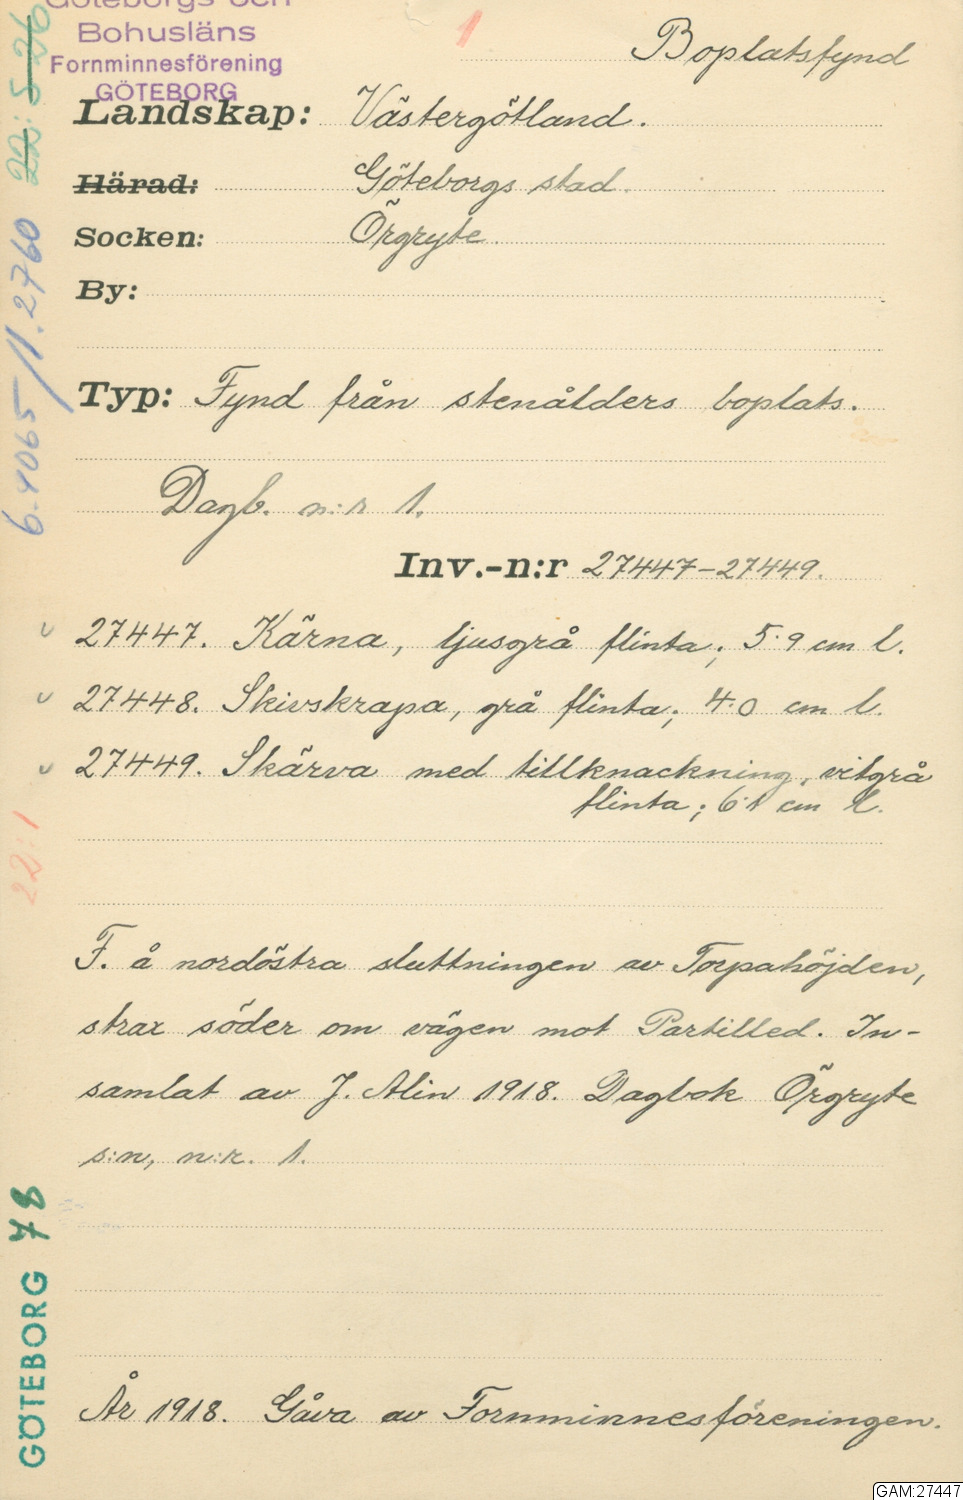 Göteborgs och
Bohusläns
Fornminnesförening
GÖTEBORG
1
Boplatsfynd
Landskap: Västergötland.
Härad: Göteborgs stad.
Socken: Örgryte.
By:
Typ: Fynd från stenålders boplats.
Dagb. n:r 1.
Inv.-n:r 27447-27449.
27447. Kärna, ljusgrå flinta; 5.9 cm l.
27448. Skivskrapa, grå flinta; 4.0 cm l.
27449. Skärva med tillknackning, vitgrå
flinta; 6.1 cm l.
F. å nordöstra sluttningen av Torpahöjden,
strax söder om vägen mot Partilled. In-
samlat av J. Alin 1918. Dagbok Örgryte
s:n, n:r. 1.
År 1918. Gåva av Fornminnesföreningen.
22: 5-26
6.4065/1.2760
22:1
GÖTEBORG 78
GAM:27447